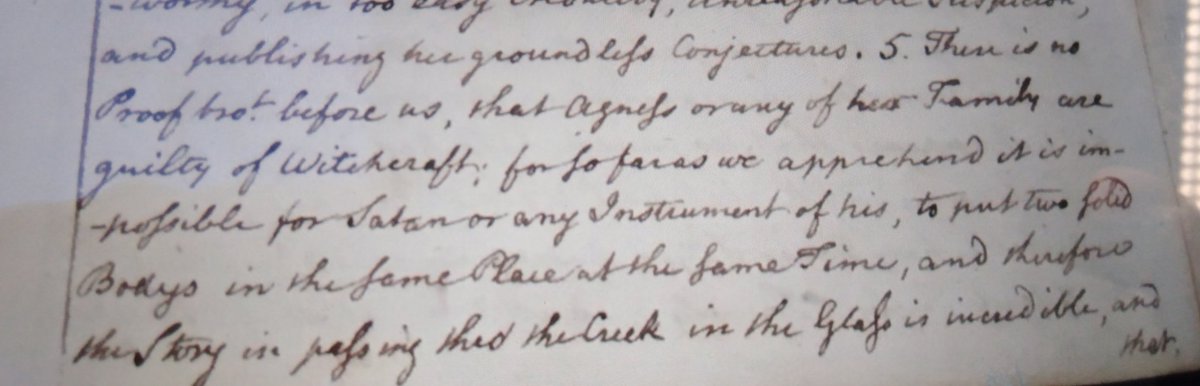 -worthy, in too easy credulity, unreasonable Suspicion,
and publishing her groundless Conjectures. 5. There is no
Proof bro.t before us, that Agness or any of her Family are
guilty of Witchcraft; for so far as we apprehend it is im-
-possible for Satan or any Instrument of his, to put two solid
Bodys in the same Place at the same Time, and therefore
the Story in passing thro' the Creek in the Glass is incredible, and
that.